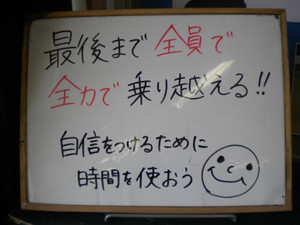 最後まで全員で
全力で乗り越える!!
自信をつけるために
時間を使おう